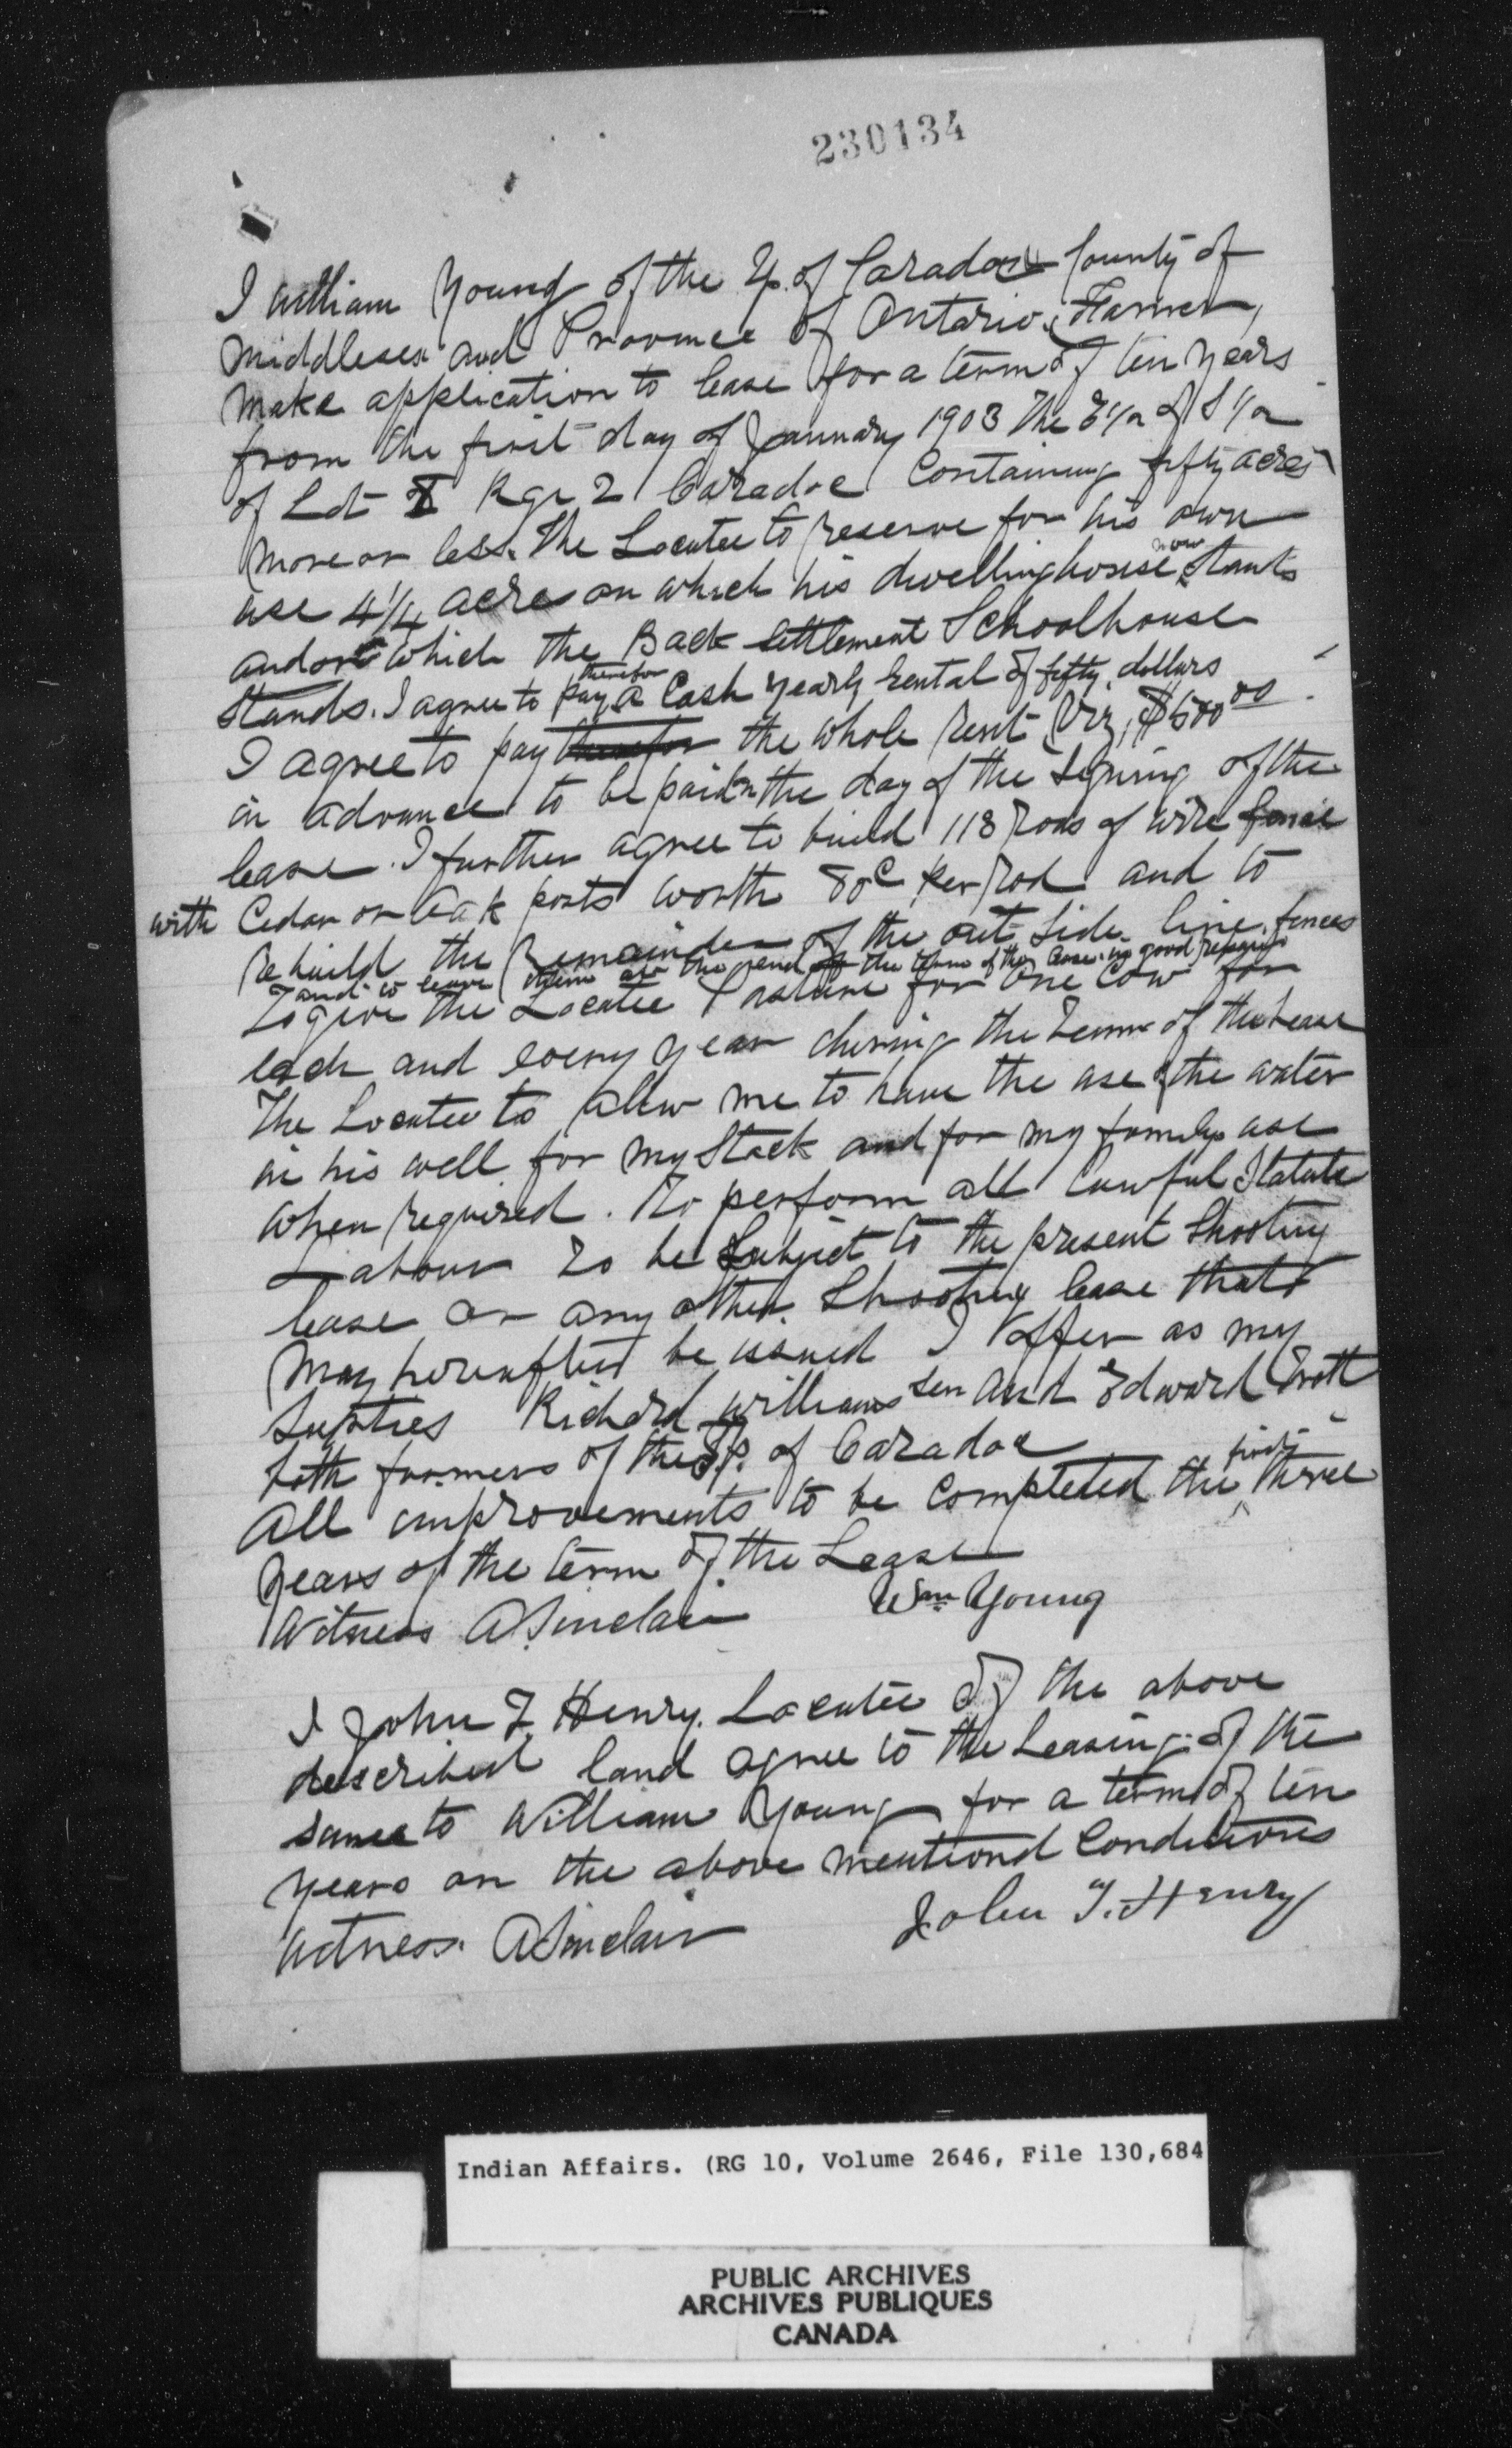 230134
I William Young of the Tp. of Caradoc County of
Middlesex and Province of Ontario, Farmer,
make application to lease for a term of ten years
from the first day of January 1903 The E 1/2 of S 1/2
of Lot Rge 2 Caradoc Containing fifty acres
more or less. The Locatee to reserve for his own
use 4 1/4 acres on which his dwelling house now stands
and on which the Back Settlement Schoolhouse
stands. I agree to pay therefor a Cash yearly rental of fifty dollars
I agree to pay therefor the whole rent Viz, $500.00
in advance to be paid on the day of the signing of the
lease. I further agree to build 118 rods of wire fence
with Cedar or Oak posts worth 80c per rod and to
rebuild the remainder of the out side line fences
and to leave them at the end of the term of the lease in good repair
To give the Locatee Pasture for one Cow for
each and every year during the term of the Lease
The Locatee to allow me to have the use of the water
in his well for my Stock and for my family use
when required. To perform all lawful Statute
Labour To be Subject to the present Shooting
lease or any other Shooting lease that
may hereafter be issued I offer as my
Sureties Richard Williams Sen and Edward
both farmers of the Tp. of Caradoc
All improvements to be Completed the first three
years of the term of the Lease
Witness A Sinclair Wm Young
I John T. Henry. Locatee of the above
described land agree to the Leasing of the
same to William Young for a term of ten
years on the above mentiond Conditions
Witness. A Sinclair John T. Henry
Indian Affairs. (RG 10, Volume 2646, File 130,684
PUBLIC ARCHIVES
ARCHIVES PUBLIQUES
CANADA